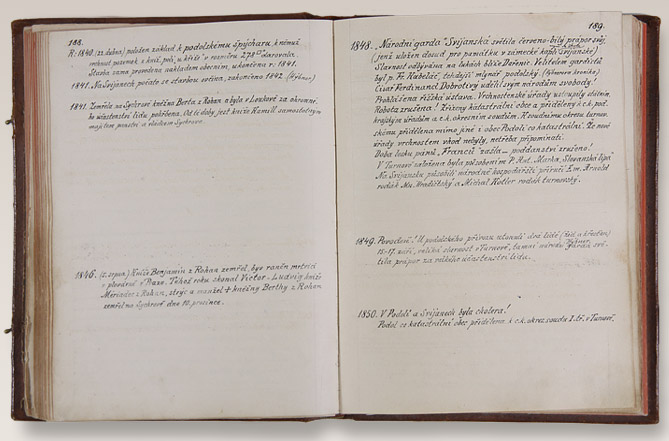 188.
R: 1840. (22. dubna) položen základ k podolskému špýcharu, k němuž
vrchnost pozemek z knž. polí, u kříže v rozměru 278□° darovala.
Stavba sama provedena nákladem obecním, ukončena r: 1841.
1841. Na Svijanech počato se stavbou ovčína, zakončeno 1842.
1841. Zemřela na Sychrově kněžna Berta z Rohan a byla v Loukově za ohromné-
ho účastenství lidu pohřbena. Od té doby jest kníže Kamill samostatným
majitelem panství a sídlem Sychrova.
1846. (2. srpna) Kníže Benjamin z Rohan zemřel, byv raněn mrtvicí
v plovárně v Praze. Téhož roku skonal Victor - Ludvig kníže
Meriadec z Rohan, strýc a manžel + kněžny Berthy z Rohan
zemřel na Sychrově dne 10. prosince.
189.
1848. „Národní garda" Svijanská světila červeno-bílý prapor svůj.
(jenž uložen dosud pro památku v zámecké kapli Svijanské)
Slavnost odbývána na lukách blíže Pařenic. Velitelem gardistů
byl p. Fr. Kubelač, tehdejší mlynář podolský.
Císař Ferdinand Dobrotivý udělil svým národům svobody!
Prohlášena říšská ústava. Vrchnostenské úřady ustoupily státním.
Robota zrušena! Zřízeny katastrální obce a přiděleny c.k. pod-
krajským úřadům a c.k. okresním soudům. K soudnímu okresu turnov-
skému přidělena mimo jiné i obec Podolí co katastrální. Že nové
úřady vrchnostem vhod nebyly, netřeba připomínati.
Doba lesku pánů „Franců" zašla – poddanství zrušeno!
V Turnově založena byla působením P. Ant. Marka, „Slovanská lípa"
Na Svijansku působili národně hospodářští příručí Em. Arnold
rodák Mn. Hradišťský a Michal Kotler rodák turnovský.
1849. Povodeň! U podolského přívozu utonuli dva lidé
15-17. září, veliká slavnost v Turnově, tamní národní garda svě-
tila prapor za velkého účastenství lidu.
1850. V Podolí a Svijanech byla cholera!
Podol co katastrální obec přidělena k c.k. okres. soudu I. tř. v Turnově.